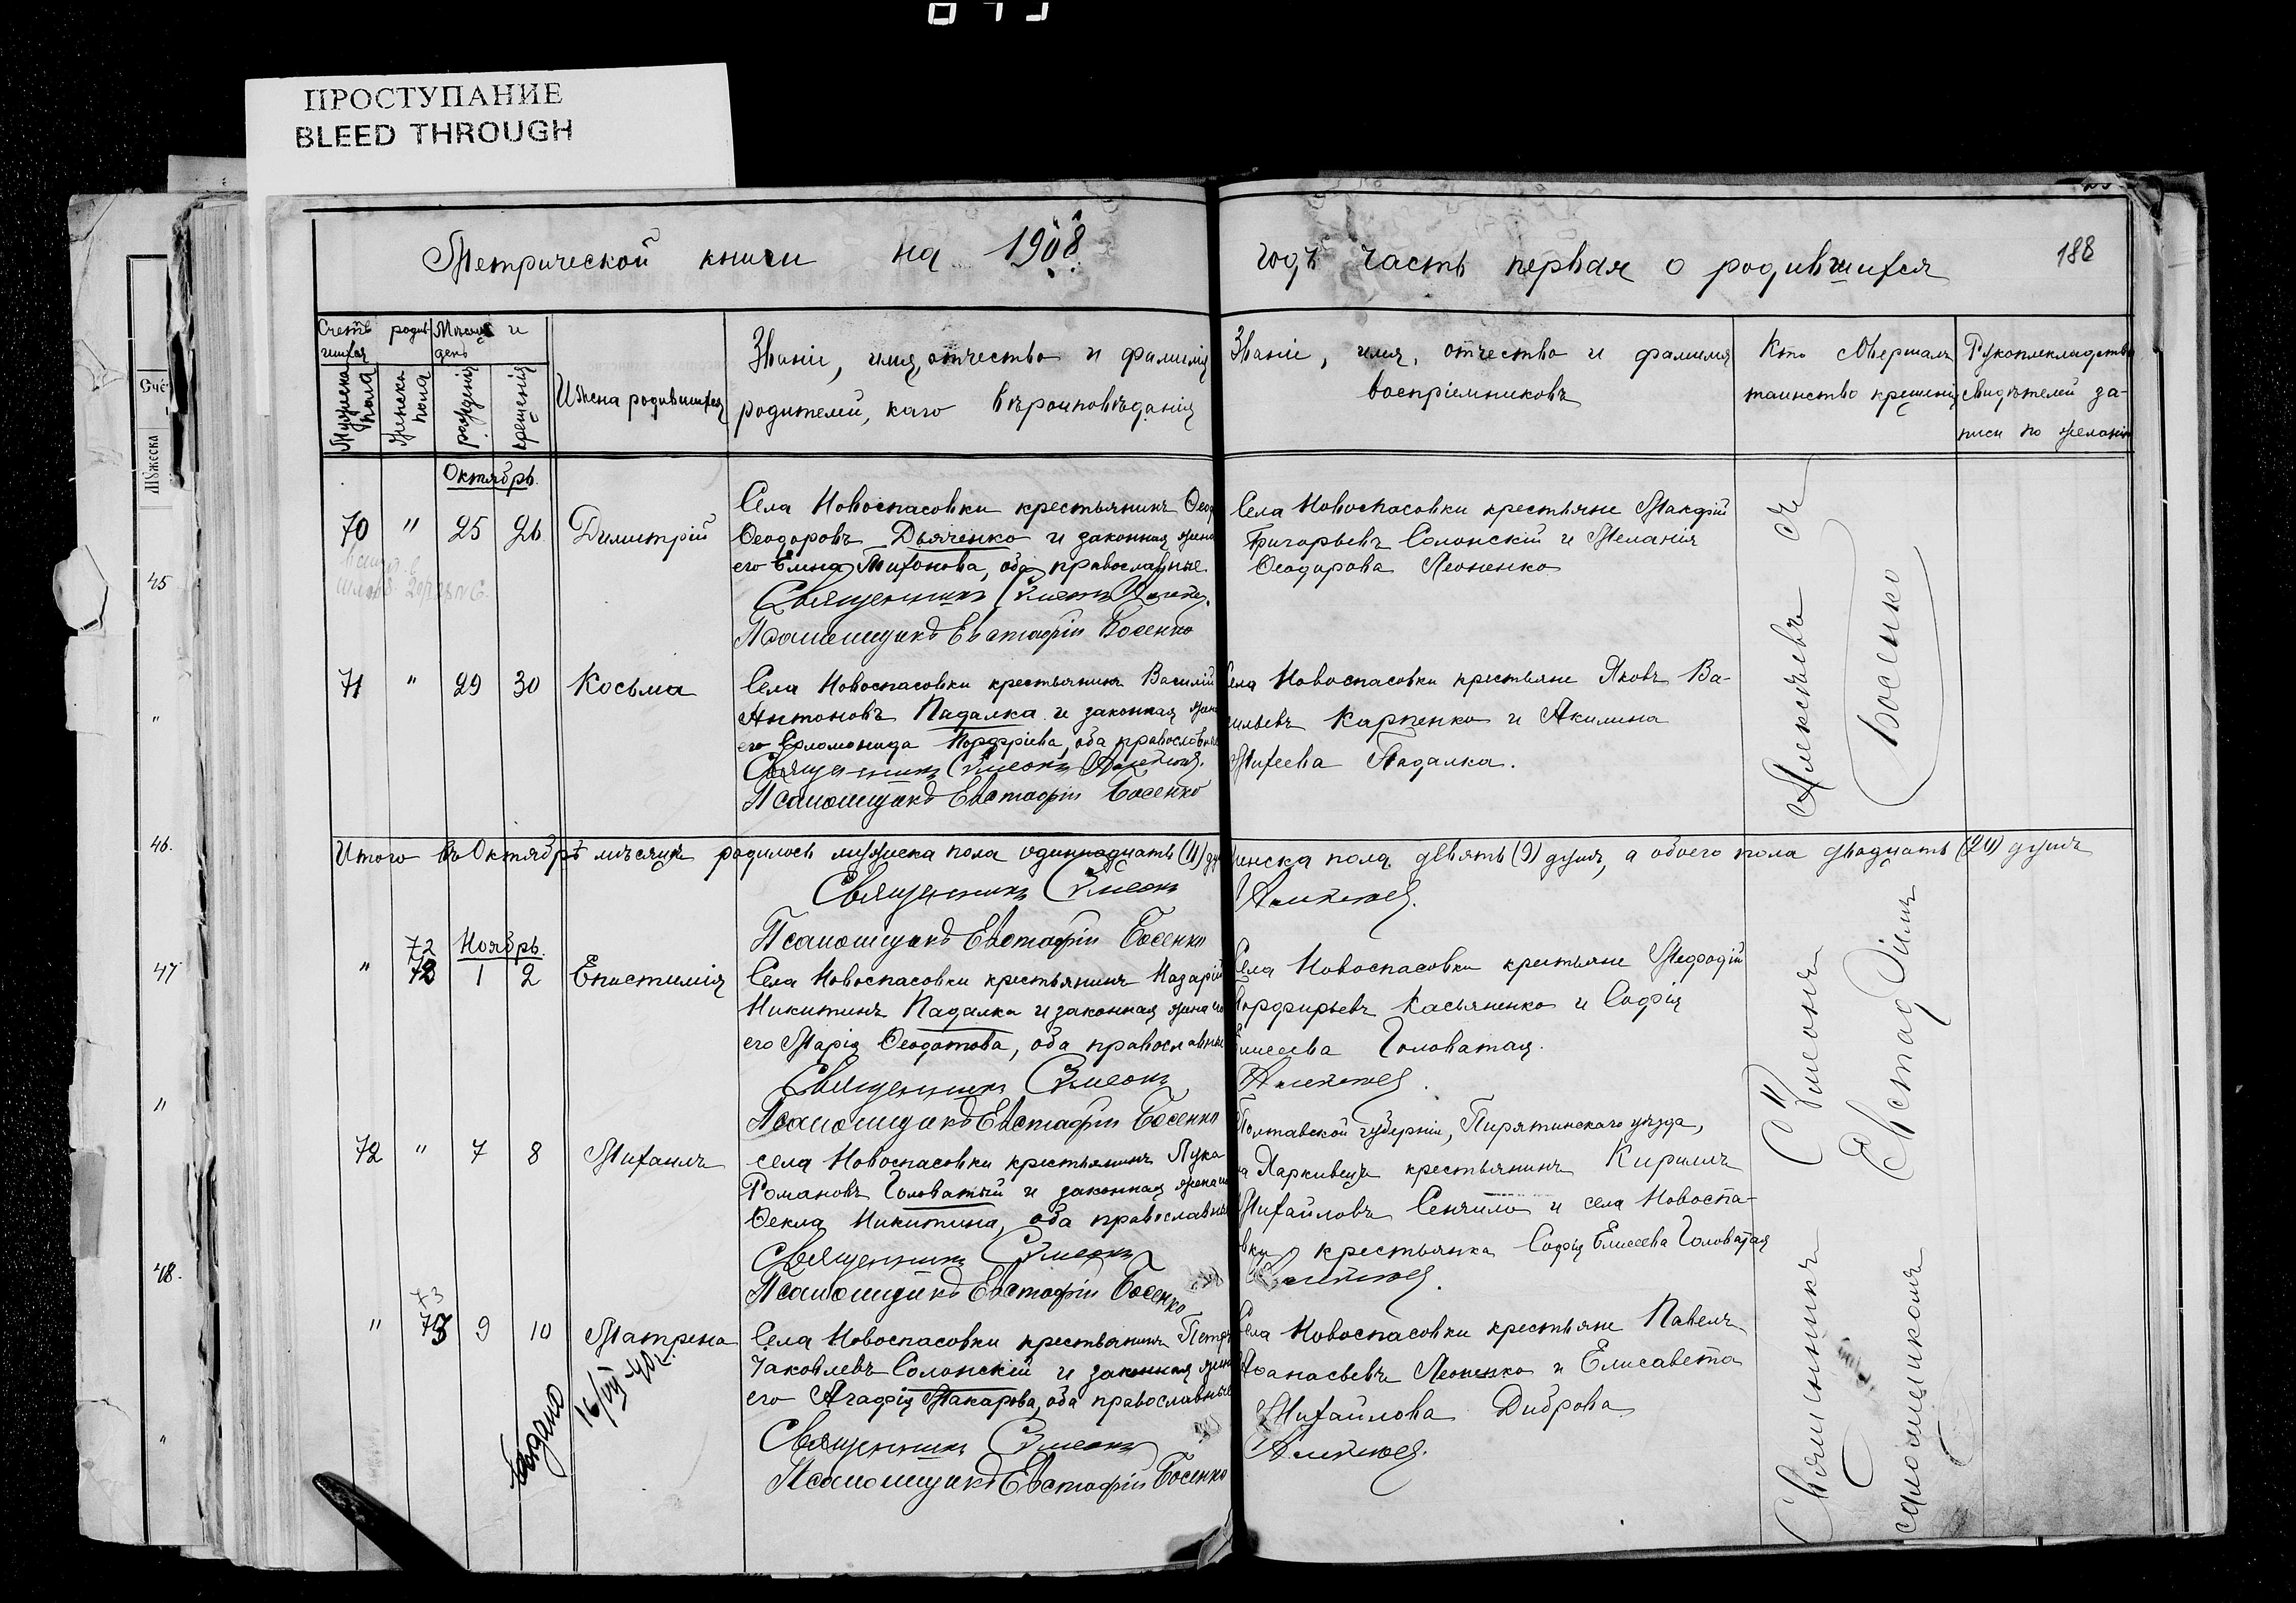 ПРОСТУПАНИЕ
BLEED THROUGH
Метрической книги на 1908
годъ часть первая о родившихся
188
Счетъ родив-
шихся
Мѣсяцъ и
день
Мужеска
пола
Женска
пола
рожденія
крещенія
Имена родившихся
Званіе, имя, отчество и фамилія
родителей, каго вѣроисповѣданія
Званіе, имя, отчество и фамилія
воспріемниковъ
Кто совершалъ
таинство крещенія
Рукоприкладство
свидѣтелей за-
писи по желанію
Октябрь.
70 " 25 26 Димитрій
Села Новоспасовки крестьянинъ Ѳеод
Ѳеодоровъ Дьяченко и законная жена
его Елена Тихонова, оба православные
Священникъ Симеонъ
Псаломщикъ Евстафій Босенко
Села Новоспасовки крестьяне Макарій
Григорьевъ Солонскій и Меланія
Ѳеодорова Леоненко
71 " 29 30 Косьма
Села Новоспасовки крестьянинъ Василій
Антоновъ Падалка и законная жена
его Соломонида Порфріева, оба православные
Священникъ Симеонъ
Псаломщикъ Евстафій Босенко
Села Новоспасовки крестьяне Яковъ Ва-
сильевъ Карпенко и Акилина
Михеева Падалка.
Итого въ Октябрѣ мѣсяцѣ родилось мужеска пола одиннадцать (11) ду
женска пола девять (9) душъ, а обоего пола двадцать (20) душъ
Священникъ Симеонъ
Псаломщикъ Евстафій Босенко
Ноябрь.
72
" 72 1 2 Епистимія
Села Новоспасовки крестьянинъ Назарій
Никитинъ Падалка и законная жена
его Марія Ѳеодотова, оба православные
Священникъ Симеонъ
Псаломщикъ Евстафій Босенко
Села Новоспасовки крестьяне Меѳодій
Порфирьевъ Касьяненко и Софія
Елисеева Головатая.
72 " 7 8 Михаилъ
села Новоспасовки крестьянинъ Лука
Романовъ Головатый и законная жена
Ѳекла Никитина, оба православные
Священникъ Симеонъ
Псаломщикъ Евстафій Босенко
Полтавской губерніи, Пирятинскаго уѣзда,
Харкивецъ крестьянинъ Кириллъ
Михайловъ Сенчило и села Новоспа-
вки крестьянка Софія Елисеева Головатая
73
" 73 9 10 Матрена
Села Новоспасовки крестьянинъ Петръ
Яковлевъ Солонскій и законная жена
его Агафія Макарова, оба православные
Священникъ Симеонъ
Псаломщикъ Евстафій Босенко
Села Новоспасовки крестьяне Павелъ
Аѳанасьевъ Леоненко и Елисавета
Михайлова Диброва
Выдано
16/VII-40г.
Священникъ Симеонъ Алексѣевъ съ
псаломщикомъ Евстафіемъ Босенко
Счё
Мужеска
45
"
46.
47
"
48.
"